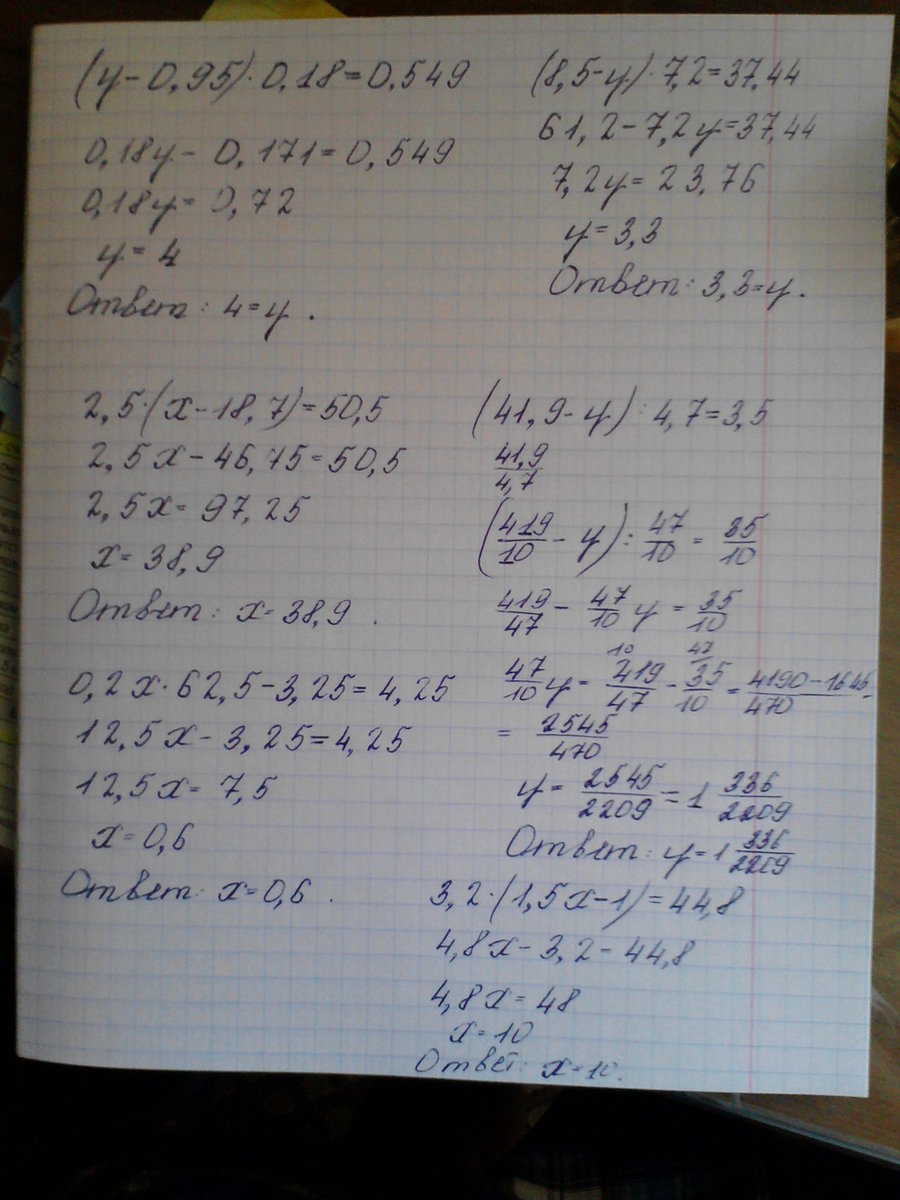 (y-0,95)·0,18=0,549
0,18y-0,171=0,549
0,18y=0,72
y=4
Ответ: 4=y.
(8,5-y)·7,2=37,44
61,2-7,2y=37,44
7,2y=23,76
y=3,3
Ответ: 3,3=y.
2,5·(x-18,7)=50,5
2,5x-46,75=50,5
2,5x=97,25
x=38,9
Ответ: x=38,9.
0,2x·62,5-3,25=4,25
12,5x-3,25=4,25
12,5x=7,5
x=0,6
Ответ: x=0,6.
(41,9-y):4,7=3,5
41,9/4,7
(419/10-y):47/10=35/10
419/47-47/10y=35/10
10 47
47/10y=419/47-35/10=4190-1645/470=
=2545/470
y=2545/2209=1 336/2209
Ответ: y=1 336/2209
3,2·(1,5x-1)=44,8
4,8x-3,2=44,8
4,8x=48
x=10
Ответ: x=10.